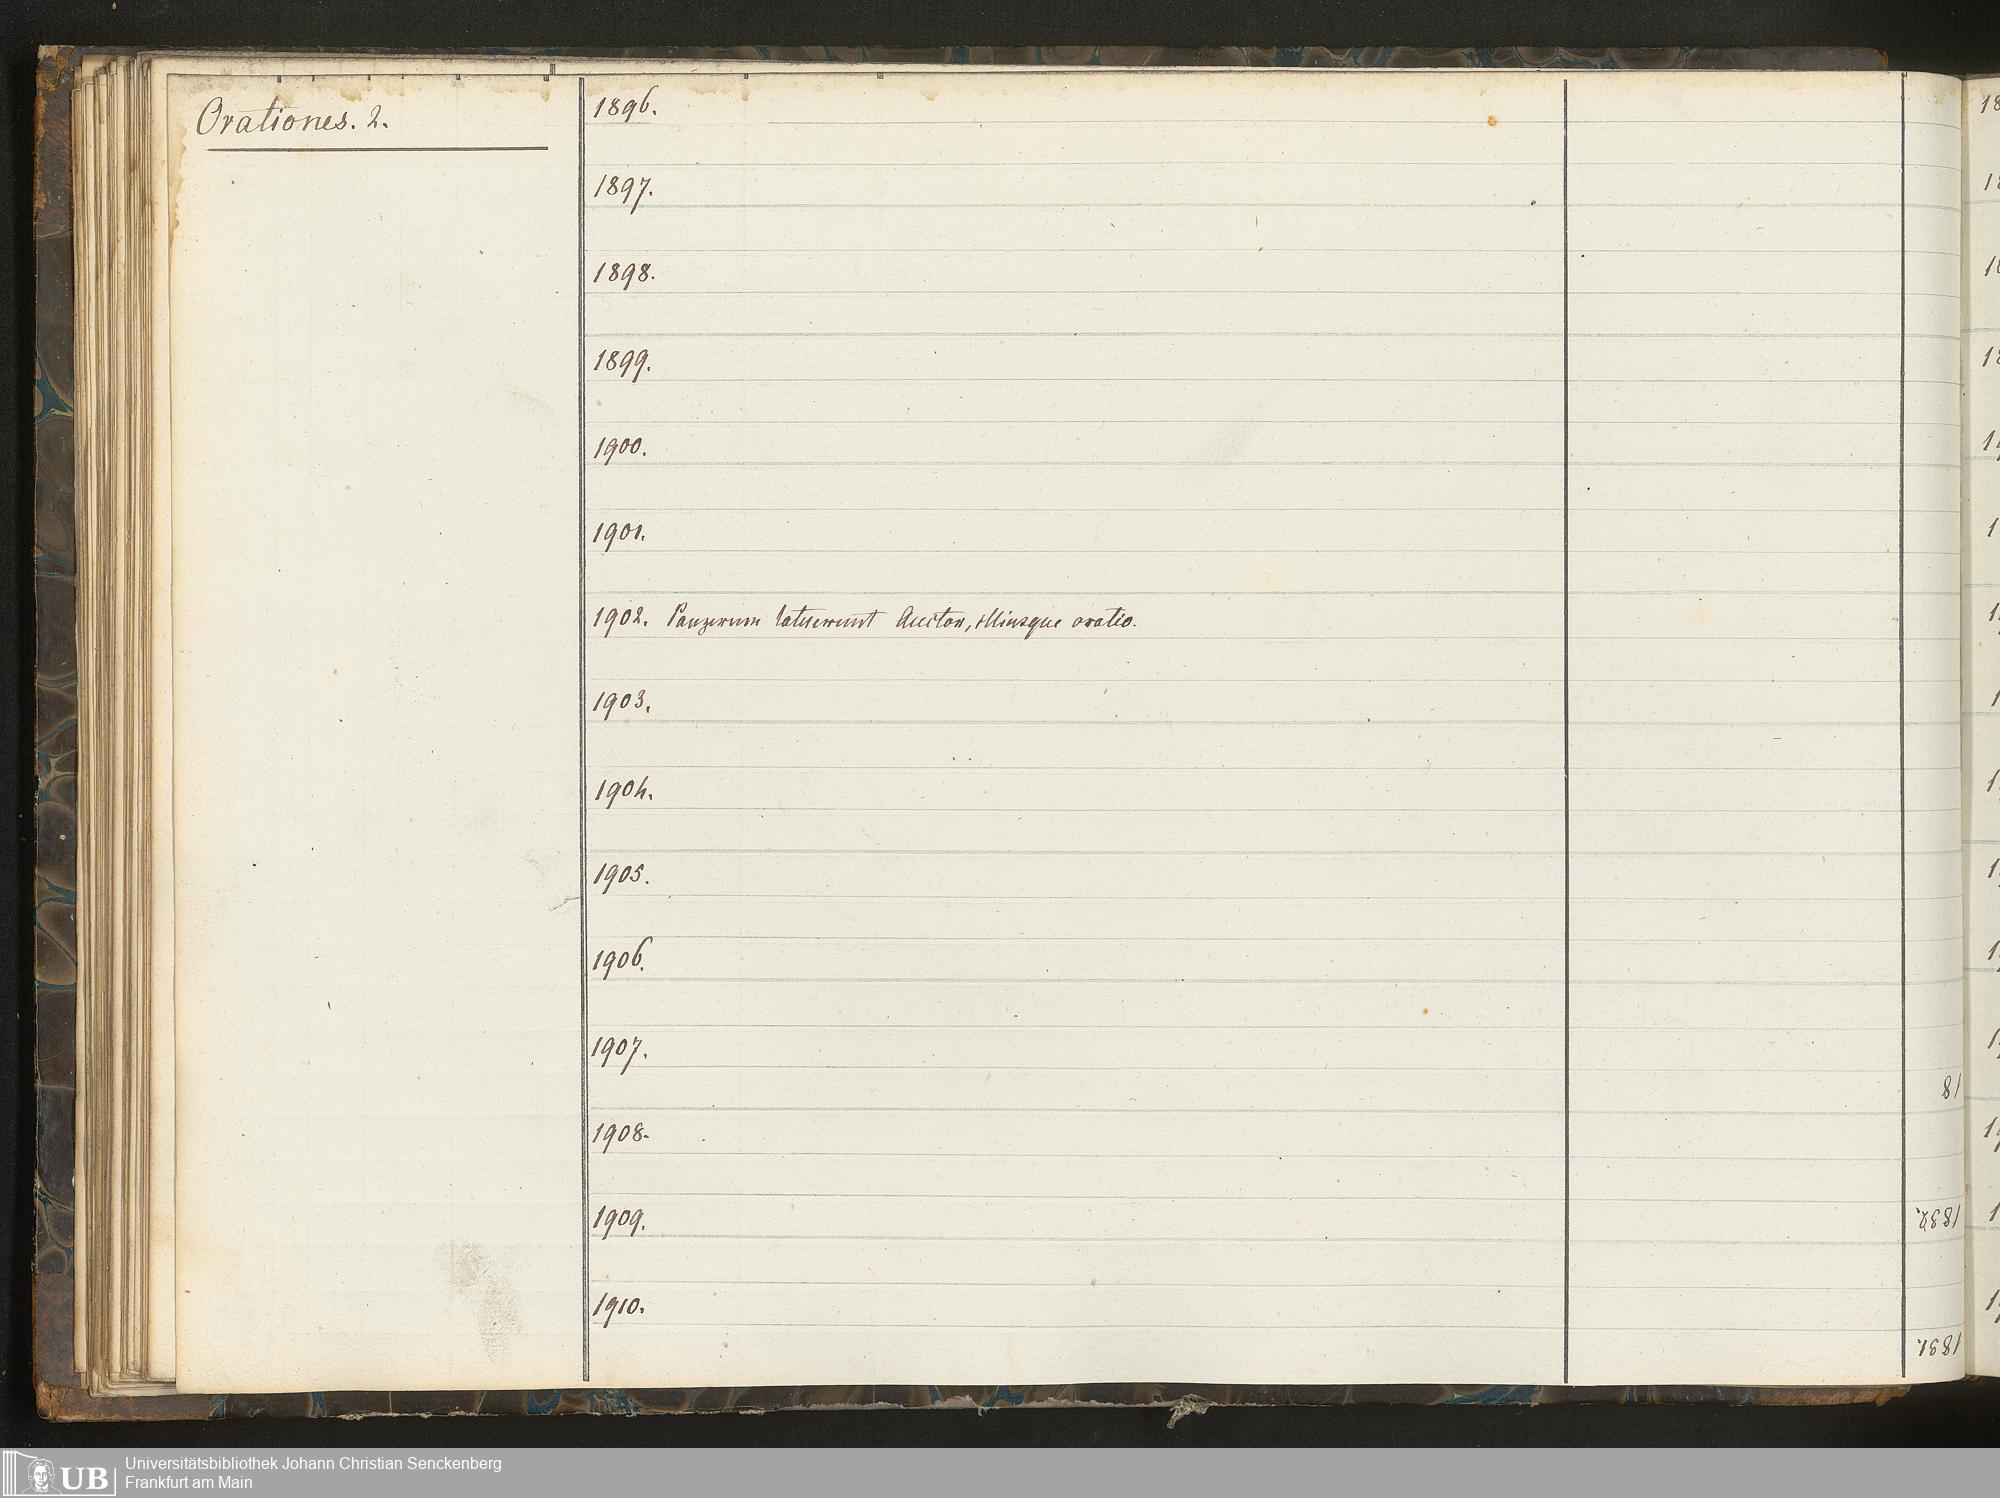 Orationes. 2.
1896.
1897.
1898.
1899.
1900.
1901.
1902. Panzerum latuerunt Auctor, illiusque oratio.
1903.
1904.
1905.
1906.
1907.
1908.
1909.
1910.
18
1832.
1831.
Universitätsbibliothek Johann Christian Senckenberg
Frankfurt am Main
UB